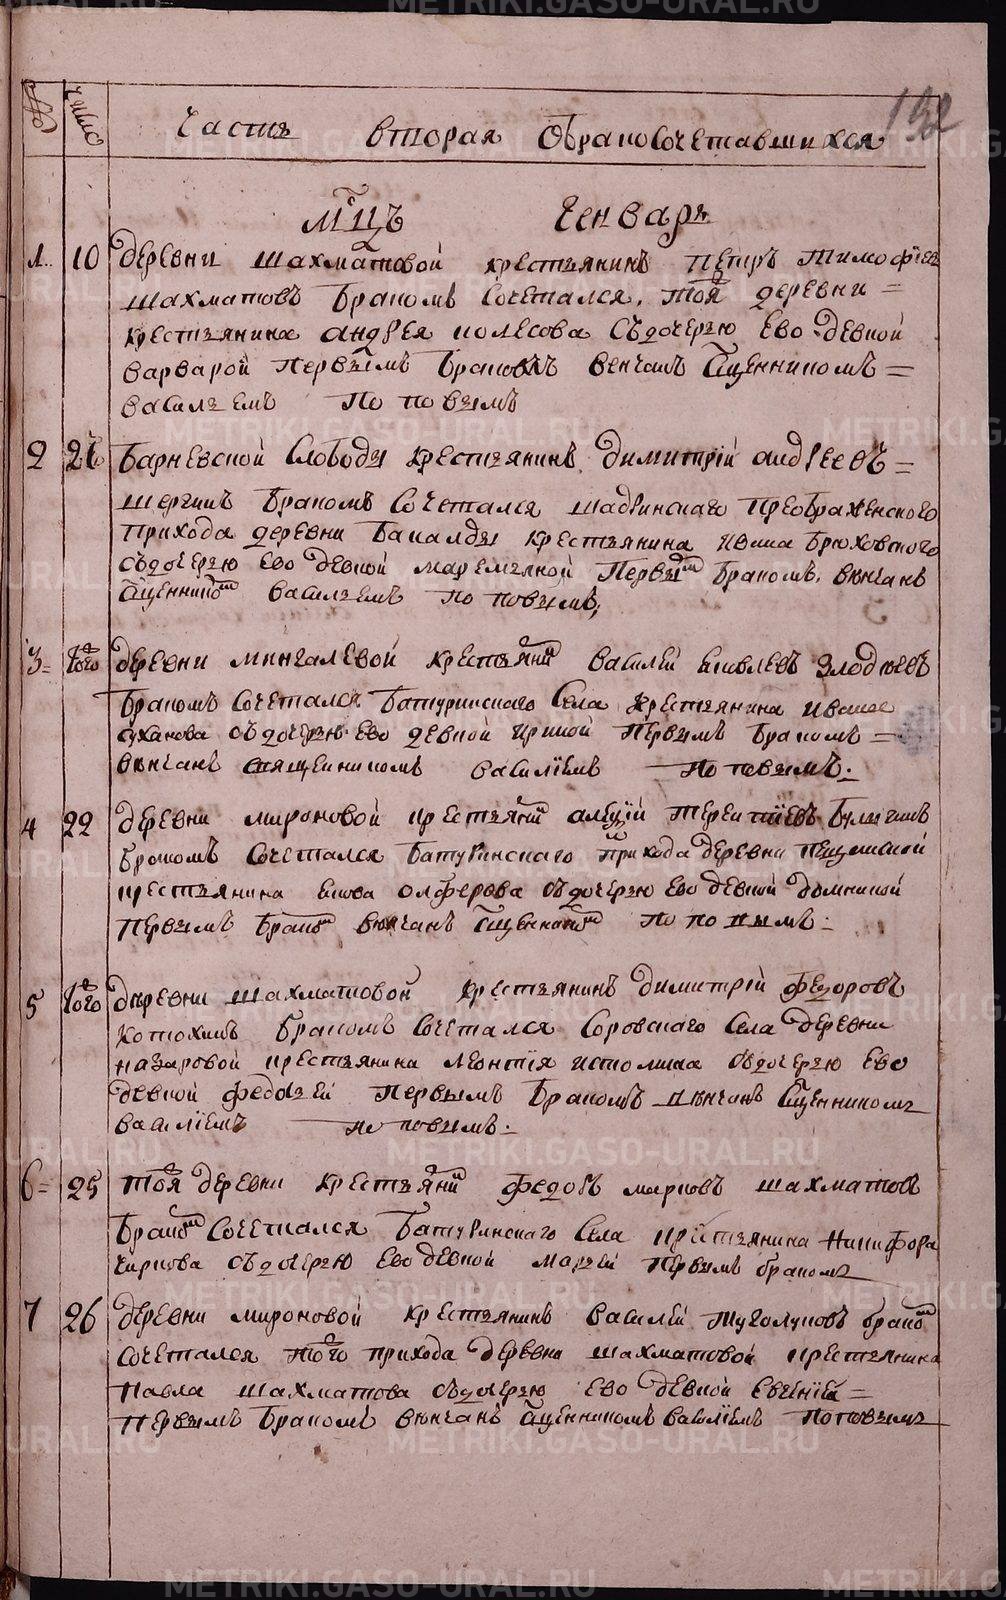 METRIKI.GASO-URAL.RU
192
№ Число Часть вторая Обракосочетавшихся
Мцъ Генварь
1. 10 деревни Шахматовой крестьянинъ Петръ Тимофеев
Шахматовъ бракомъ сочетался, тоя деревни =
крестьянина Андрея Колесова съдочерью ево девкой
Варварой первымъ бракомъ венчанъ сщенникомъ =
Васильемъ Поповымъ
2 21 Барневской слободы крестьянинъ Димитрий Андреевъ =
бракомъ сочетался Шадринскаго Преображенского
прихода деревни Бакалды крестьянина Ивана Брюховского
съдочерью ево девкой Маремьяной первым бракомъ, венчанъ
сщенником Васильемъ Поповымъ,
3 = того деревни Мингалевой крестьянин Василей Яковлевъ Злодеевъ
бракомъ сочетался Батуринскаго села крестьянина Ивана
Суханова съдочерью ево девкой Ириной первымъ бракомъ =
венчанъ священникомъ Василіемъ Поповымъ.
4 22 деревни Мироновой крестьянин Алеѯій Терентиевъ Булыгинъ
бракомъ сочетался Батуринскаго прихода деревни
крестьянина Якова Олферова съдочерью ево девкой Домникой
первымъ браком венчанъ сщенником Поповымъ.
5 того деревни Шахматовой крестьянинъ Димитрій Федоровъ
Котюхинъ бракомъ сочетался Соровскаго села деревни
Назаровой крестьянина Леонтія Истомина съдочерью ево
девкой Федосьей первымъ бракомъ венчанъ сщенникомъ
Василіемъ Поповымъ.
6 = 25 тоя деревни крестьянин Федоръ Марковъ Шахматовъ
браком сочетался Батуринскаго села крестьянина Никифора
Чиркова съдочерью ево девкой Марьей первымъ бракомъ
7 26 деревни Мироновой крестьянинъ Василей Туголуковъ браком
сочетался того прихода деревни Шахматовой крестьянина
Павла Шахматова съдочерью ево девкой Евгениею =
первымъ бракомъ венчанъ сщенникомъ Василіемъ Поповымъ